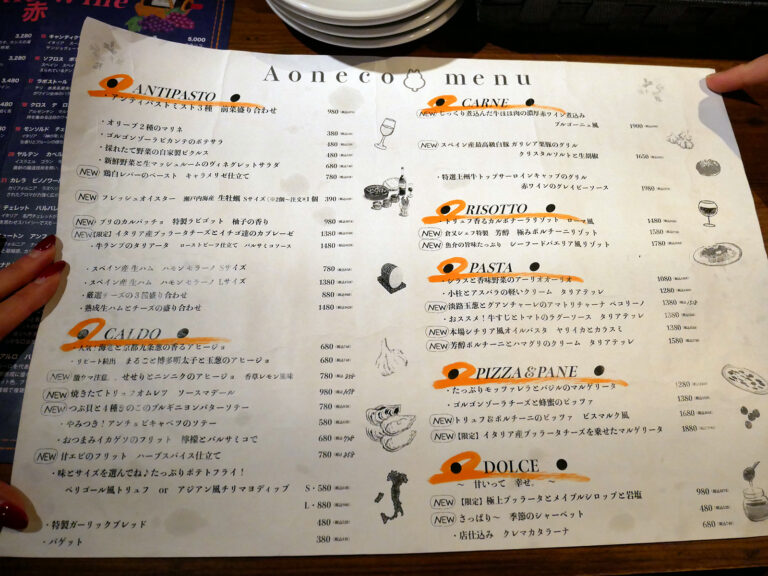 Aoneco menu
ANTIPASTO
・アンティパストミスト3種 前菜盛り合わせ 980
・オリーブ2種のマリネ 380
・ゴルゴンゾーラピカンテのポテサラ 480
・採れたて野菜の自家製ピクルス 480
・新鮮野菜と生マッシュルームのヴィネグレットサラダ 680
NEW 鶏白レバーのペースト キャラメリゼ仕立て 780
NEW フレッシュオイスター 瀬戸内海産 生牡蠣 Sサイズ(※2個~注文)×1個 390
NEW ブリのカルパッチョ 特製ラビゴット 柚子の香り 980
NEW 【限定】イタリア産ブッラータチーズとイチゴ達のカプレーゼ 1380
・牛ランプのタリアータ ローストビーフ仕立て バルサミコソース 1480
・スペイン産 生ハム ハモンセラーノ Sサイズ 780
・スペイン産 生ハム ハモンセラーノ Lサイズ 1380
・厳選チーズの3種盛り合わせ 880
・熟成生ハムとチーズの盛り合わせ 1480
CALDO
・人気!海老と京都九条葱の香るアヒージョ 680
・リピート続出 まるごと博多明太子と玉葱のアヒージョ 680
NEW 激ウマ注意、せせりとニンニクのアヒージョ 香草レモン風味 780
NEW 焼きたてトリュフオムレツ ソースマデール 980
NEW つぶ貝と4種きのこのブルギニヨンバターソテー 780
・やみつき!アンチョビキャベツのソテー 580
・おつまみイカゲソのフリット 檸檬とバルサミコで 680
NEW 甘エビのフリット ハーブスパイス仕立て 780
・味とサイズを選んでね♪たっぷりポテトフライ!
ペリゴール風トリュフ or アジアン風チリマヨディップ S・580
L・880
・特製ガーリックブレッド 480
・バゲット 380
CARNE
NEW じっくり煮込んだ牛ほほ肉の濃厚赤ワイン煮込み
ブルゴーニュ風 1900
NEW スペイン産最高級白豚 ガリシア栗豚のグリル
クリスタルソルトと生胡椒 1650
・特選上州牛トップサーロインキャップのグリル
赤ワインのグレイビーソース 1980
RISOTTO
・トリュフ香るカルボナーラリゾット ローマ風 1480
NEW 台又シェフ特製 芳醇 極みポルチーニリゾット 1580
NEW 魚介の旨味たっぷり シーフードパエリア風リゾット 1780
PASTA
・シラスと香味野菜のアーリオオーリオ 1080
・小柱とアスパラの軽いクリーム タリアテッレ 1280
NEW 淡路玉葱とグアンチャーレのアマトリチャーナ ペコリーノ 1380
・おススメ!牛すじとトマトのラグーソース タリアテッレ 1380
NEW 本場シチリア風オイルパスタ ヤリイカとカラスミ 1380
NEW 芳醇ポルチーニとハマグリのクリーム タリアテッレ 1580
PIZZA&PANE
・たっぷりモッツァレラとバジルのマルゲリータ 1280
・ゴルゴンゾーラチーズと蜂蜜のピッツァ 1380
NEW トリュフ&ポルチーニのピッツァ ビスマルク風 1680
NEW 【限定】イタリア産ブッラータチーズを乗せたマルゲリータ 1880
DOLCE
~ 甘いって 幸せ。 ~
NEW 【限定】極上ブッラータとメイプルシロップと岩塩 980
NEW さっぱり~ 季節のシャーベット 480
・店仕込み クレマカタラーナ 680